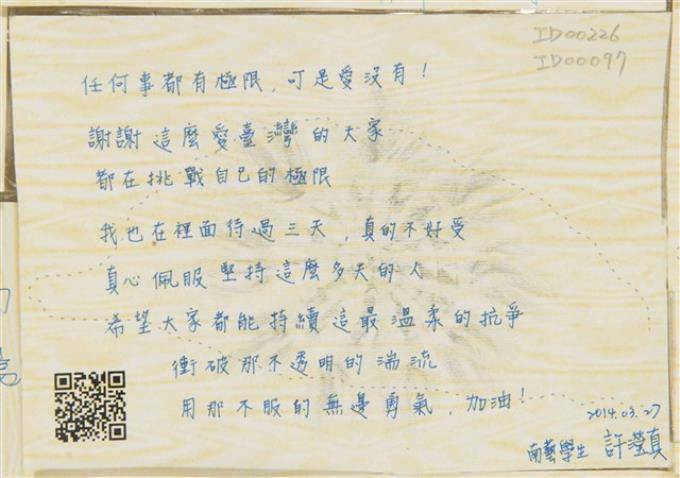 ID00226
ID00097
任何事都有極限，可是愛沒有！
謝謝這麼愛臺灣的大家
都在挑戰自己的極限
我也在裡面待過三天，真的不好受
真心佩服堅持這麼多天的人
希望大家都能持續這最溫柔的抗爭
衝破那不透明的湍流
用那不服的無邊勇氣，加油！
2014.03.27
南藝學生 許瀅真